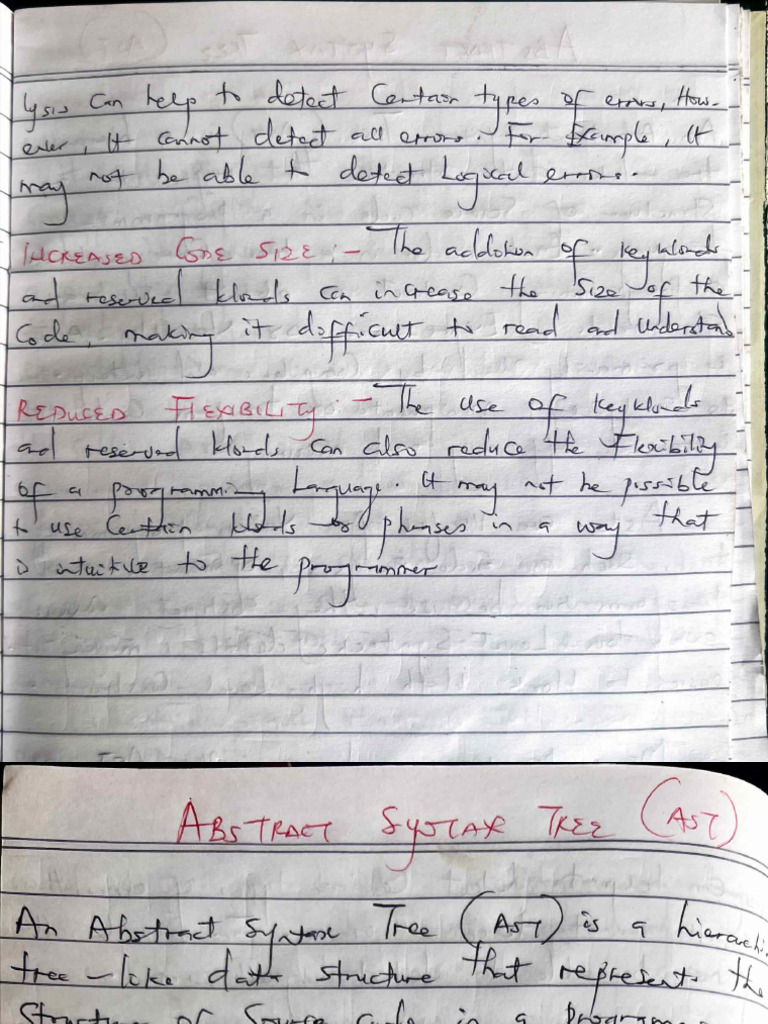 lysis can help to detect Certain types of errors, How-
ever, It cannot detect all errors. For Example, It
may not be able to detect Logical errors.
INCREASED CODE SIZE :- The addition of keywords
and reserved words can increase the Size of the
Code, making it difficult to read and understand
REDUCED FLEXIBILITY :- The use of keywords
and reserved words can also reduce the Flexibility
of a programming Language. It may not be possible
to use Certain words or phrases in a way that
is intuitive to the programmer
ABSTRACT SYNTAX TREE (AST)
An Abstract Syntax Tree (AST) is a hierarchi
tree-like data structure that represents the
Structure of Source Code in a programm